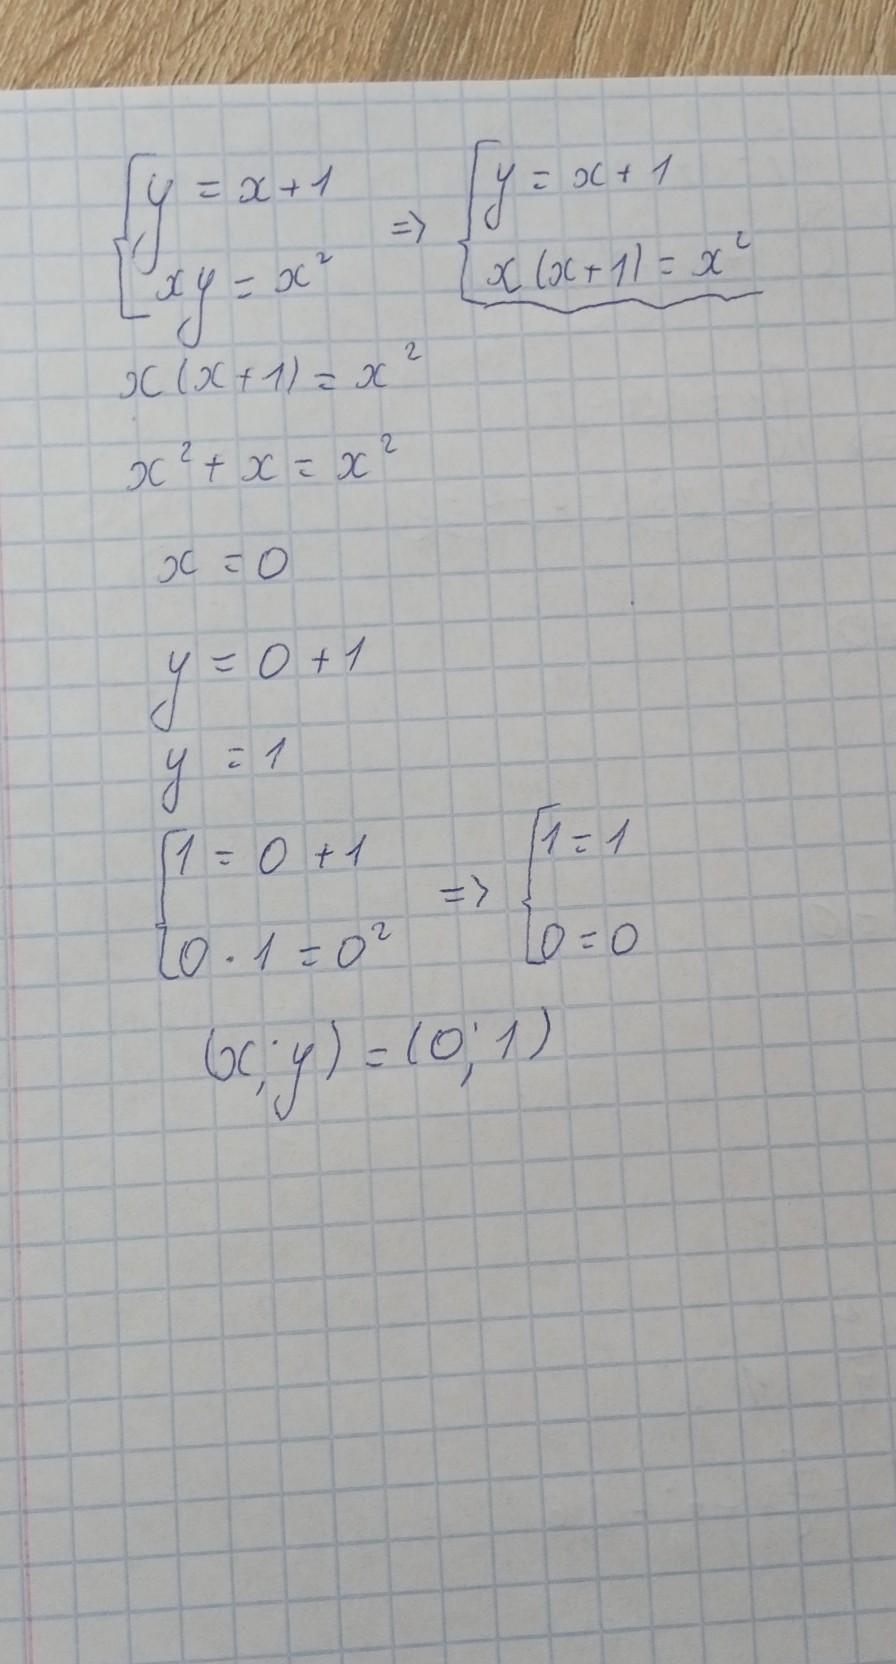 { y = x + 1 => { y = x + 1
{ xy = x² { x (x+1) = x²
x (x+1) = x²
x² + x = x²
x = 0
y = 0 + 1
y = 1
{ 1 = 0 + 1 => { 1 = 1
{ 0 · 1 = 0² { 0 = 0
(x; y) = (0; 1)